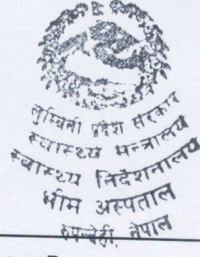 लुम्बिनी प्रदेश सरकार
स्वास्थ्य मन्त्रालय
स्वास्थ्य निर्देशनालय
भीम अस्पताल
रुपन्देही, नेपाल